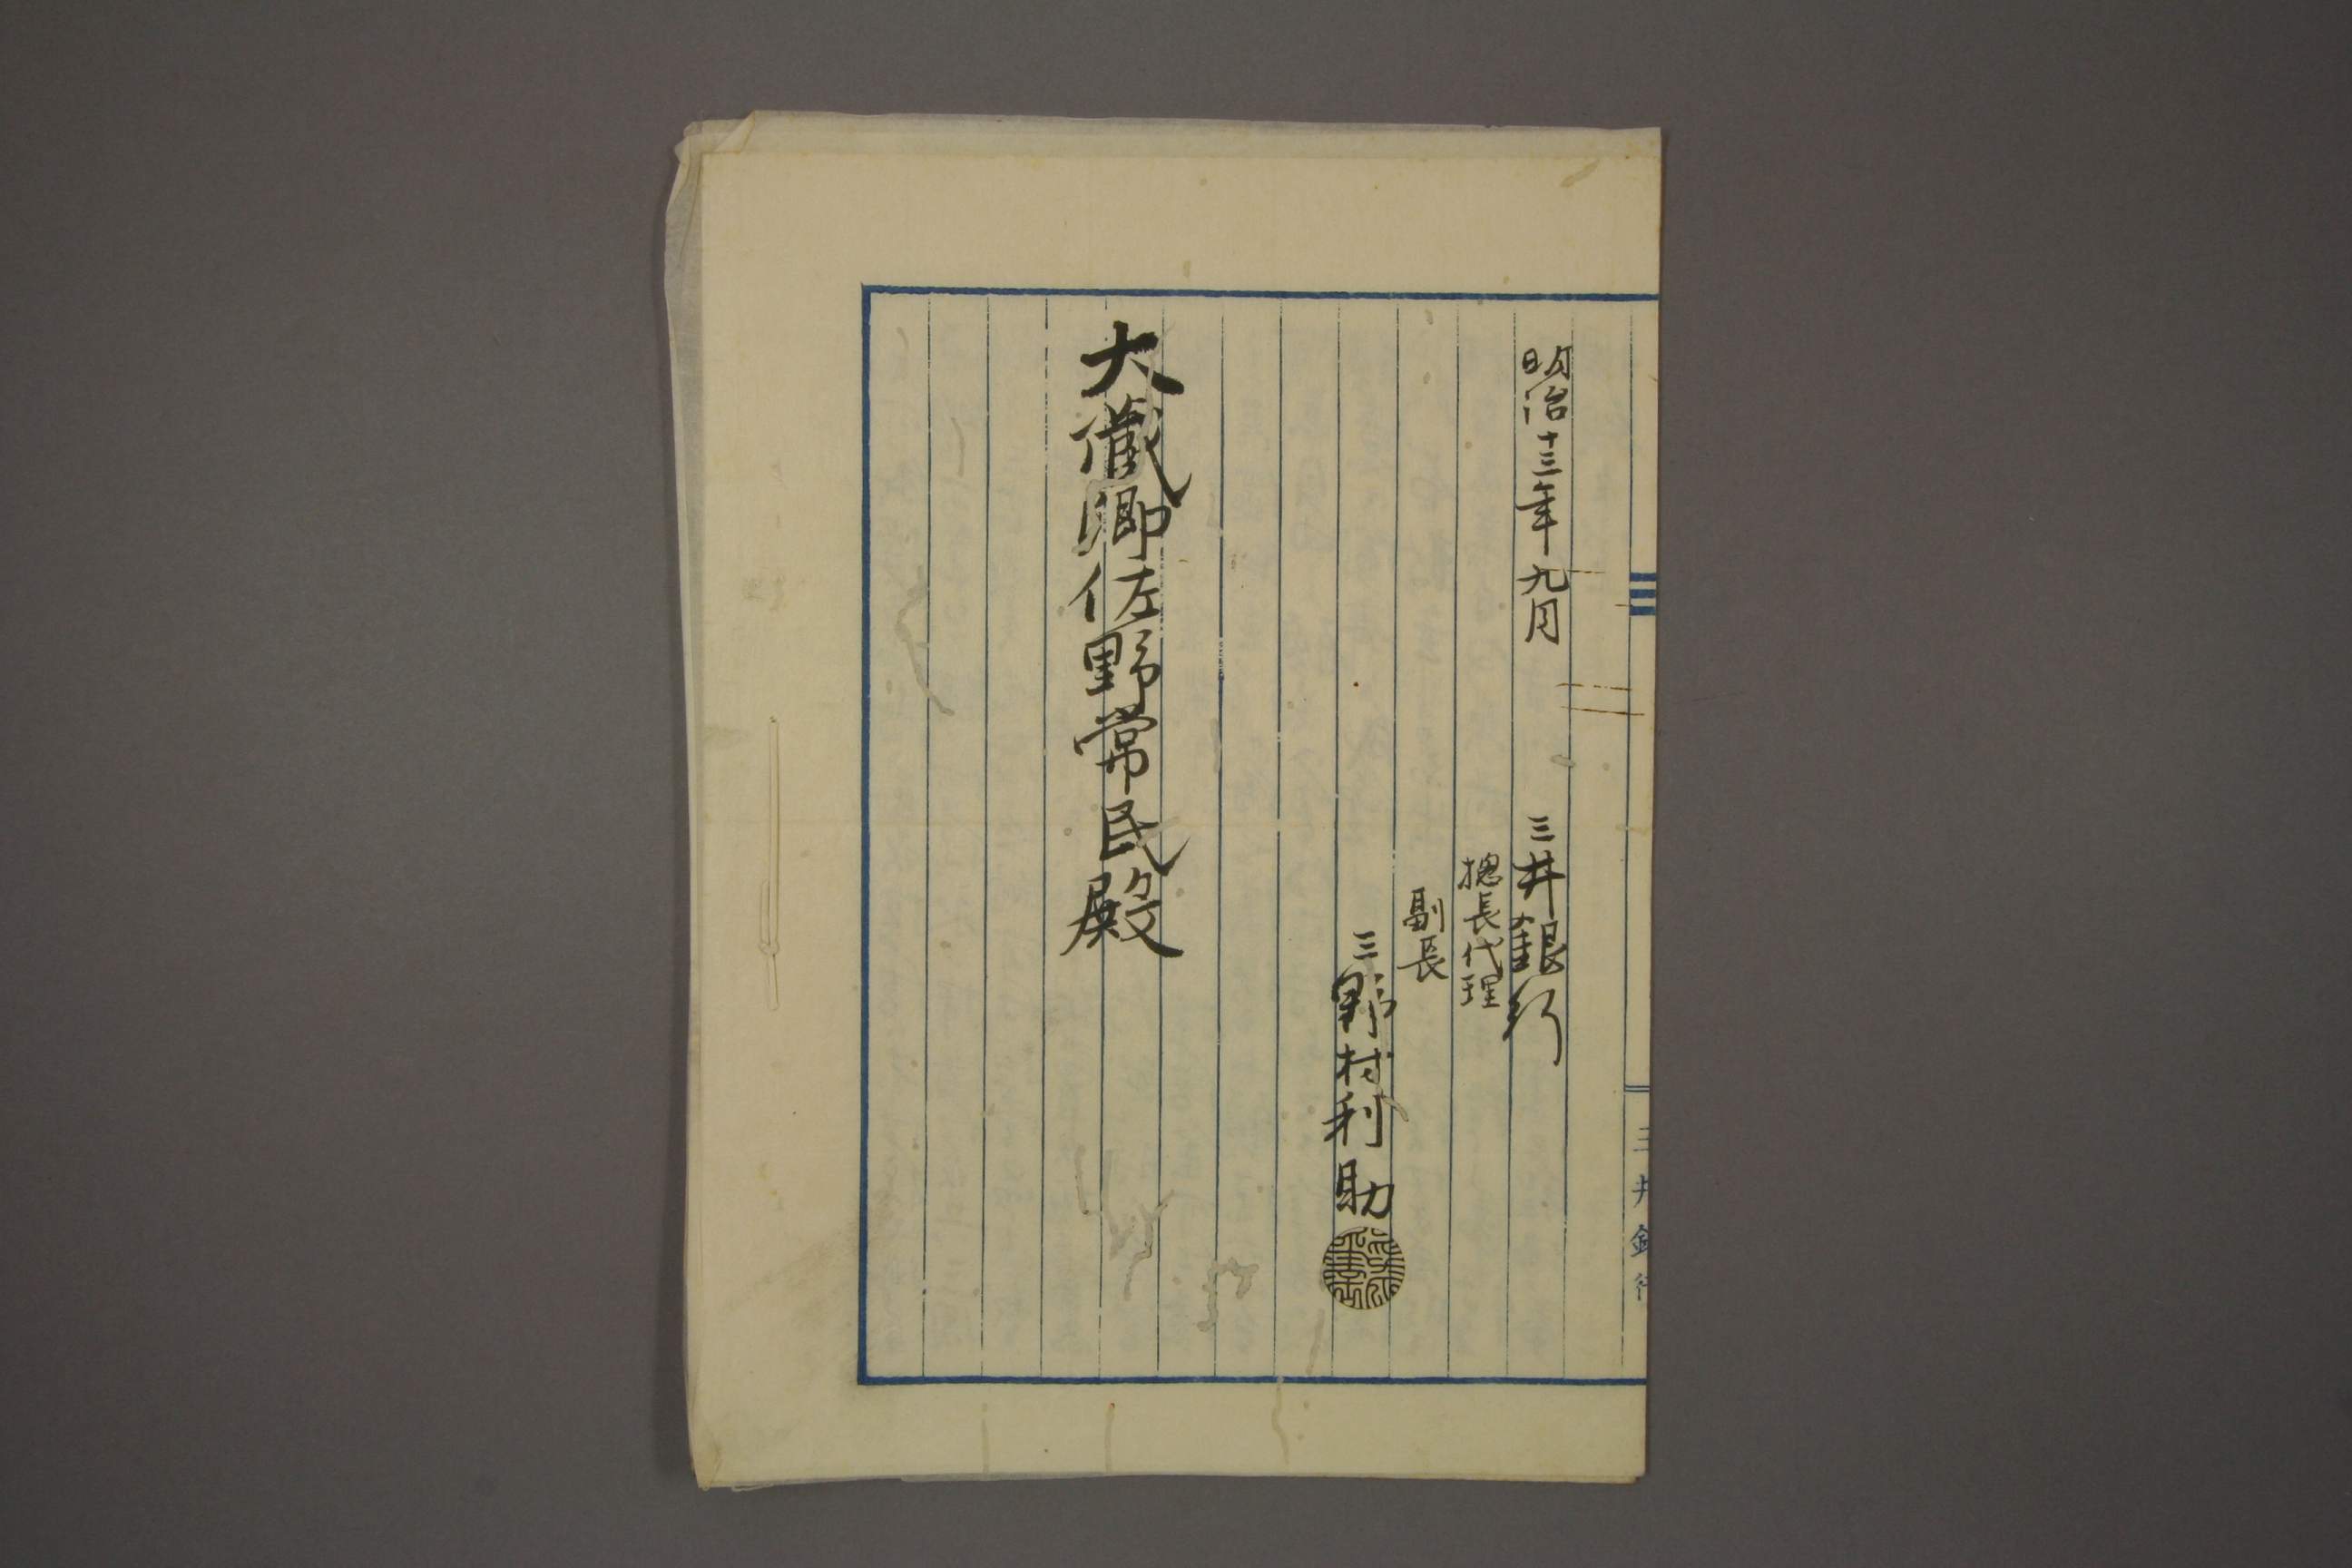 明治十三年九月
三井銀行
摠長代理
副長
三野村利助
大藏卿佐野常民殿
三井銀行